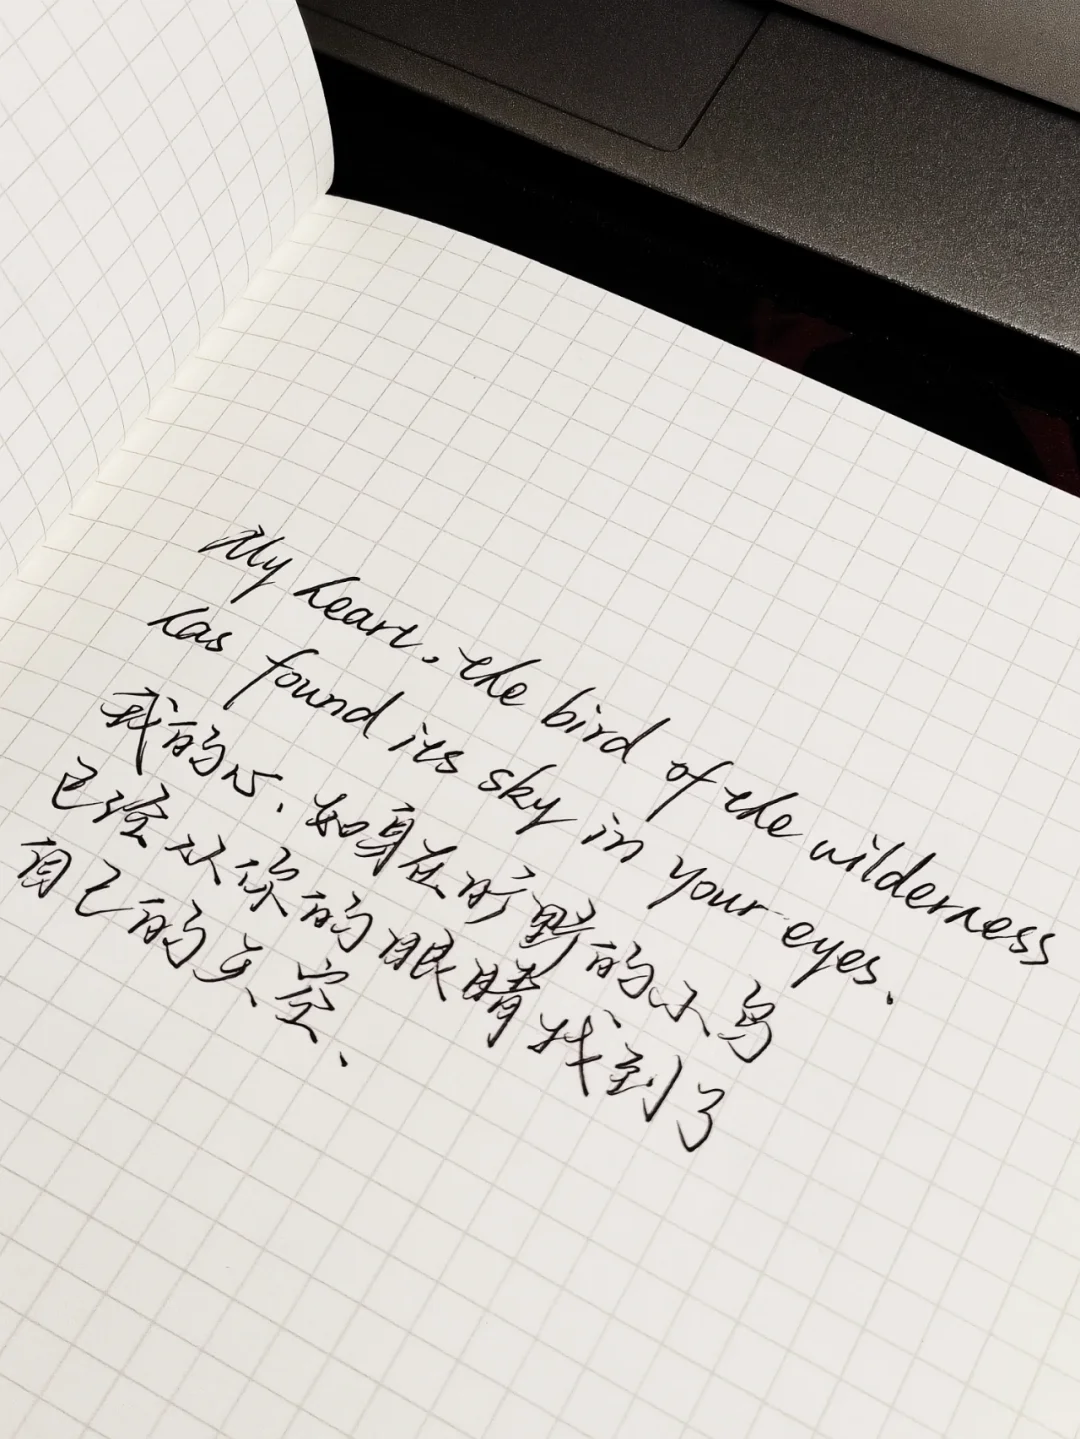 My heart, the bird of the wilderness
has found its sky in your eyes.
我的心、如身在旷野的小鸟
已经从你的眼睛找到了
自己的天空、